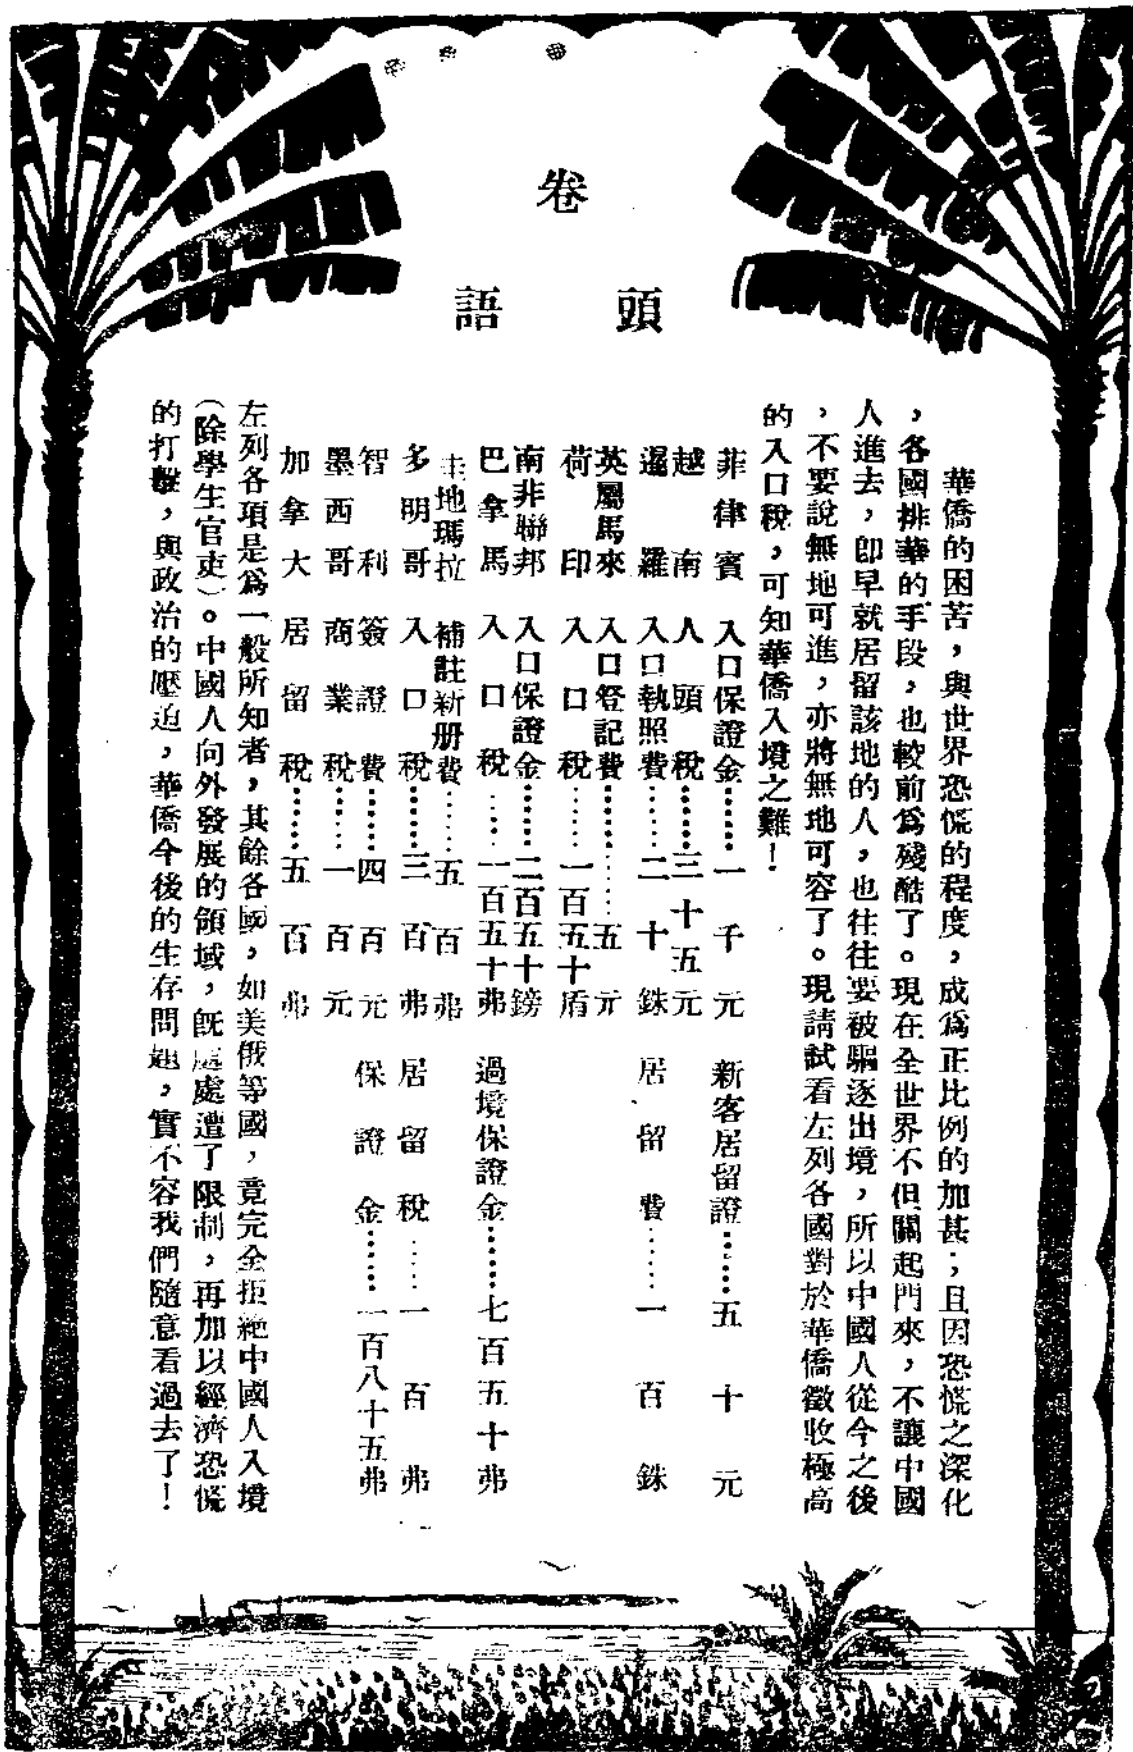 卷
頭
語
華僑的困苦，與世界恐慌的程度，成爲正比例的加甚；且因恐慌之深化
，各國排華的手段，也較前爲殘酷了。現在全世界不但關起門來，不讓中國
人進去，卽早就居留該地的人，也往往要被驅逐出境，所以中國人從今之後
，不要說無地可進，亦將無地可容了。現請試看左列各國對於華僑徵收極高
的入口稅，可知華僑入境之難！
菲律賓　入口保證金……一千元　新客居留證……五十元
越南　人頭稅……三十五元
暹羅　入口執照費……二十銖　居留費……一百銖
英屬馬來　入口登記費……五元
荷印　入口稅……一百五十盾
南非聯邦　入口保證金……二百五十鎊
巴拿馬　入口稅……一百五十弗　過境保證金……七百五十弗
圭地瑪拉　補註新册費……五百弗
多明哥　入口稅……三百弗　居留稅……一百弗
智利　簽證費……四百元　保證金……一百八十五弗
墨西哥　商業稅……一百元
加拿大　居留稅……五百弗
左列各項是爲一般所知者，其餘各國，如美俄等國，竟完全拒絶中國人入境
（除學生官吏）。中國人向外發展的領域，旣處處遭了限制，再加以經濟恐慌
的打擊，與政治的壓迫，華僑今後的生存問題，實不容我們隨意看過去了！